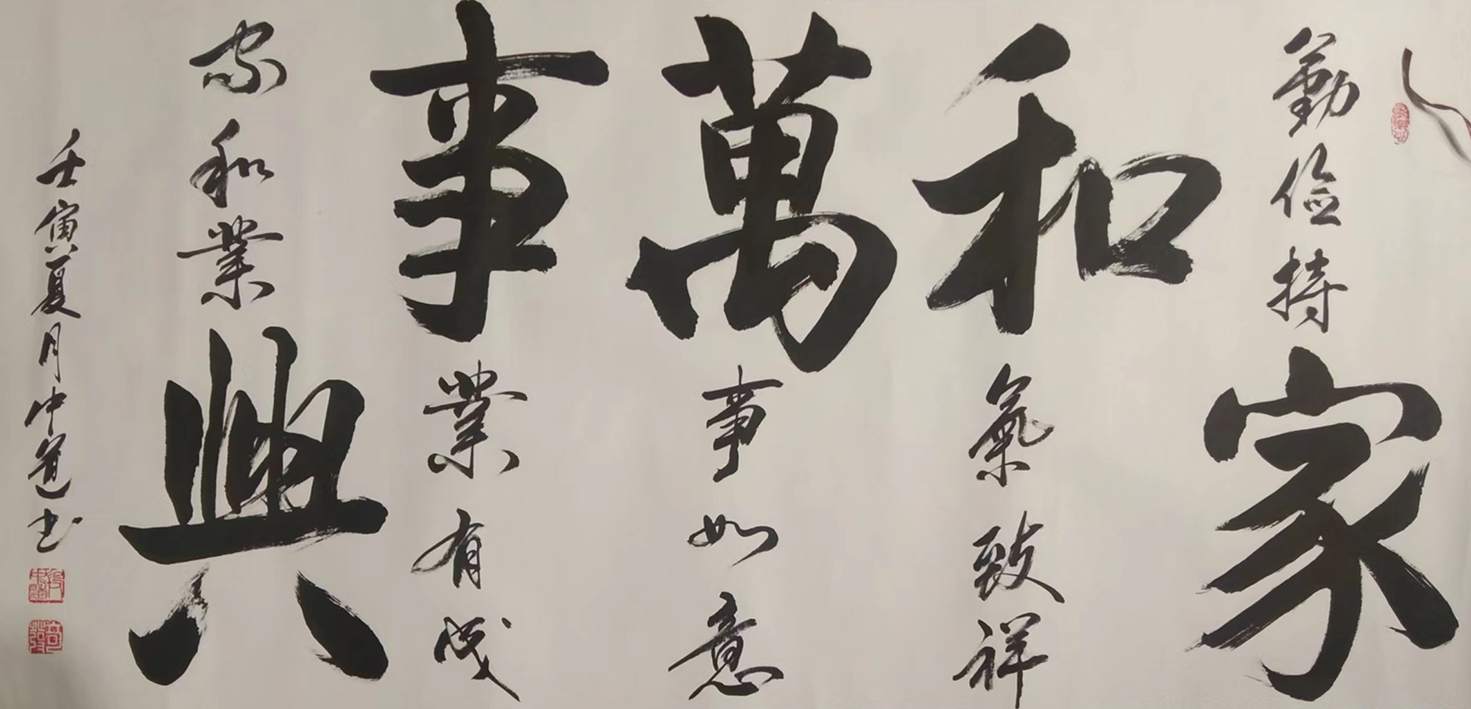 勤俭持家
和氣致祥
萬事如意
事業有成
家和業興
壬寅夏月中道书